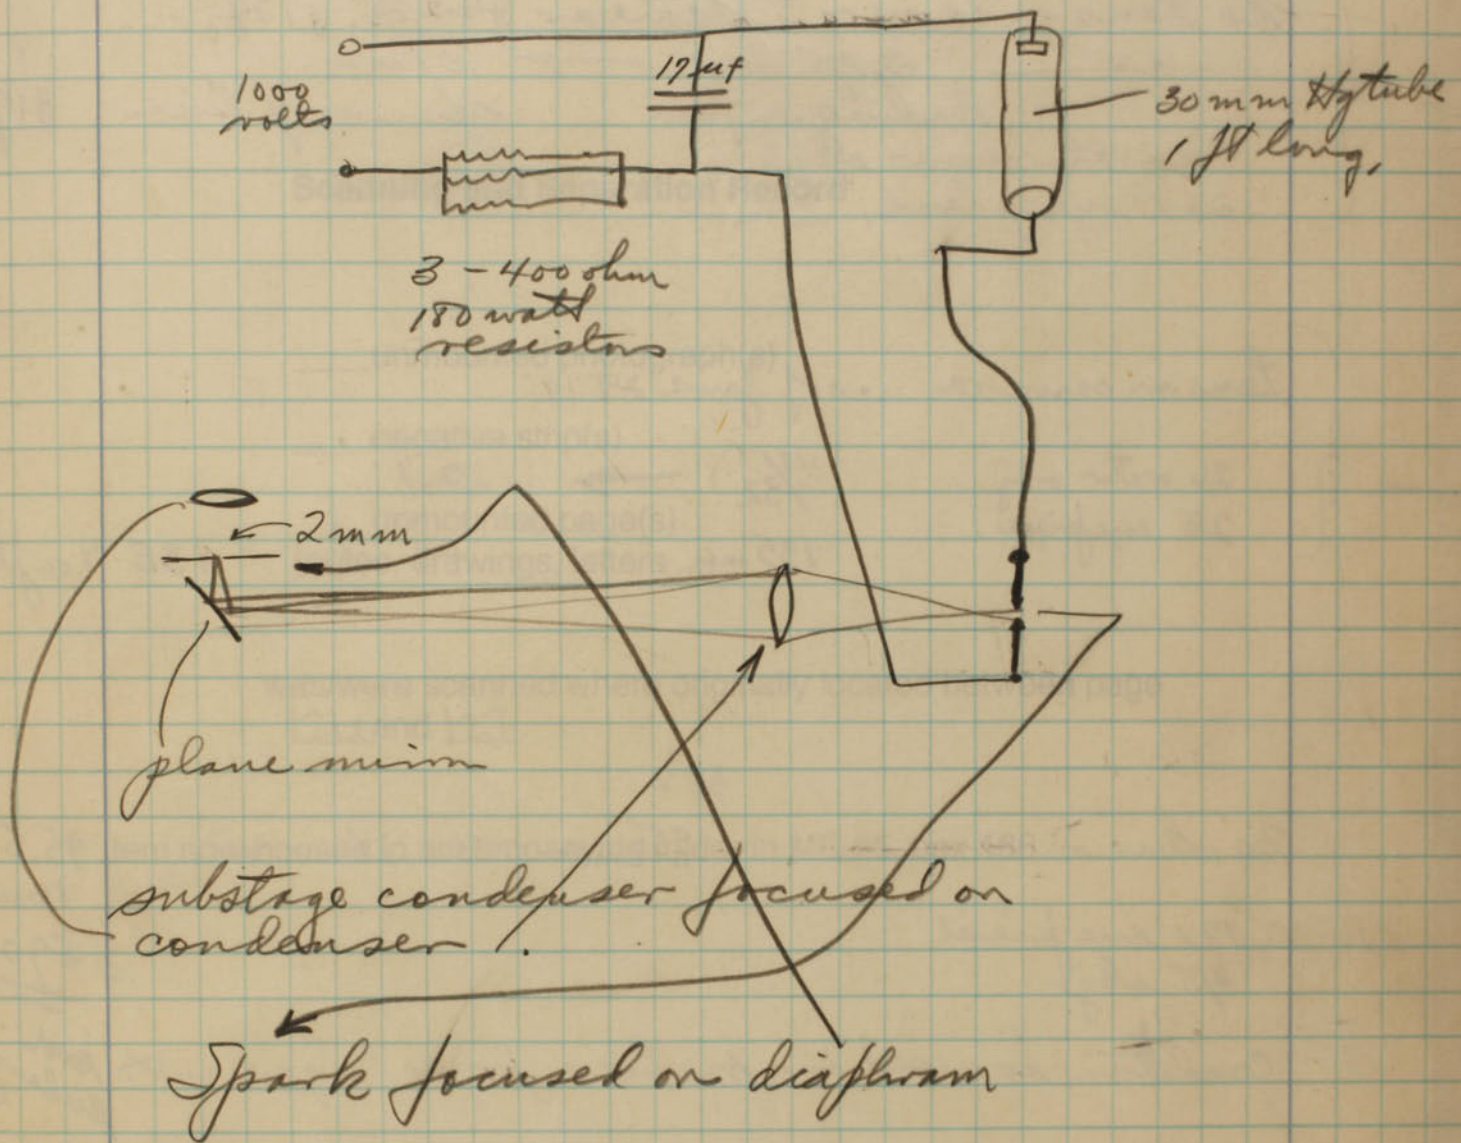 17 µf
1000
volts
30 mm Hg tube
1 ft long,
3 - 400 ohm
180 watt
resistors
2 mm
plane mirror
substage condenser focused on
condenser.
Spark focused on diaphram